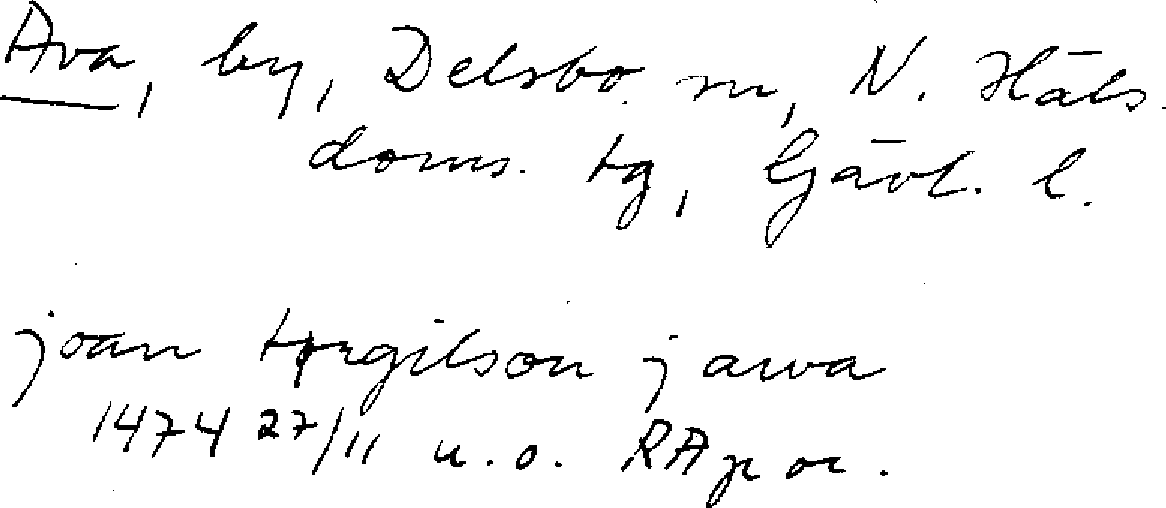 Ava, by, Delsbo sn, N. Häls.
doms. tg, Gävl. l.
joan torgilson j awa
1474 27/11 u.o. RAp or.